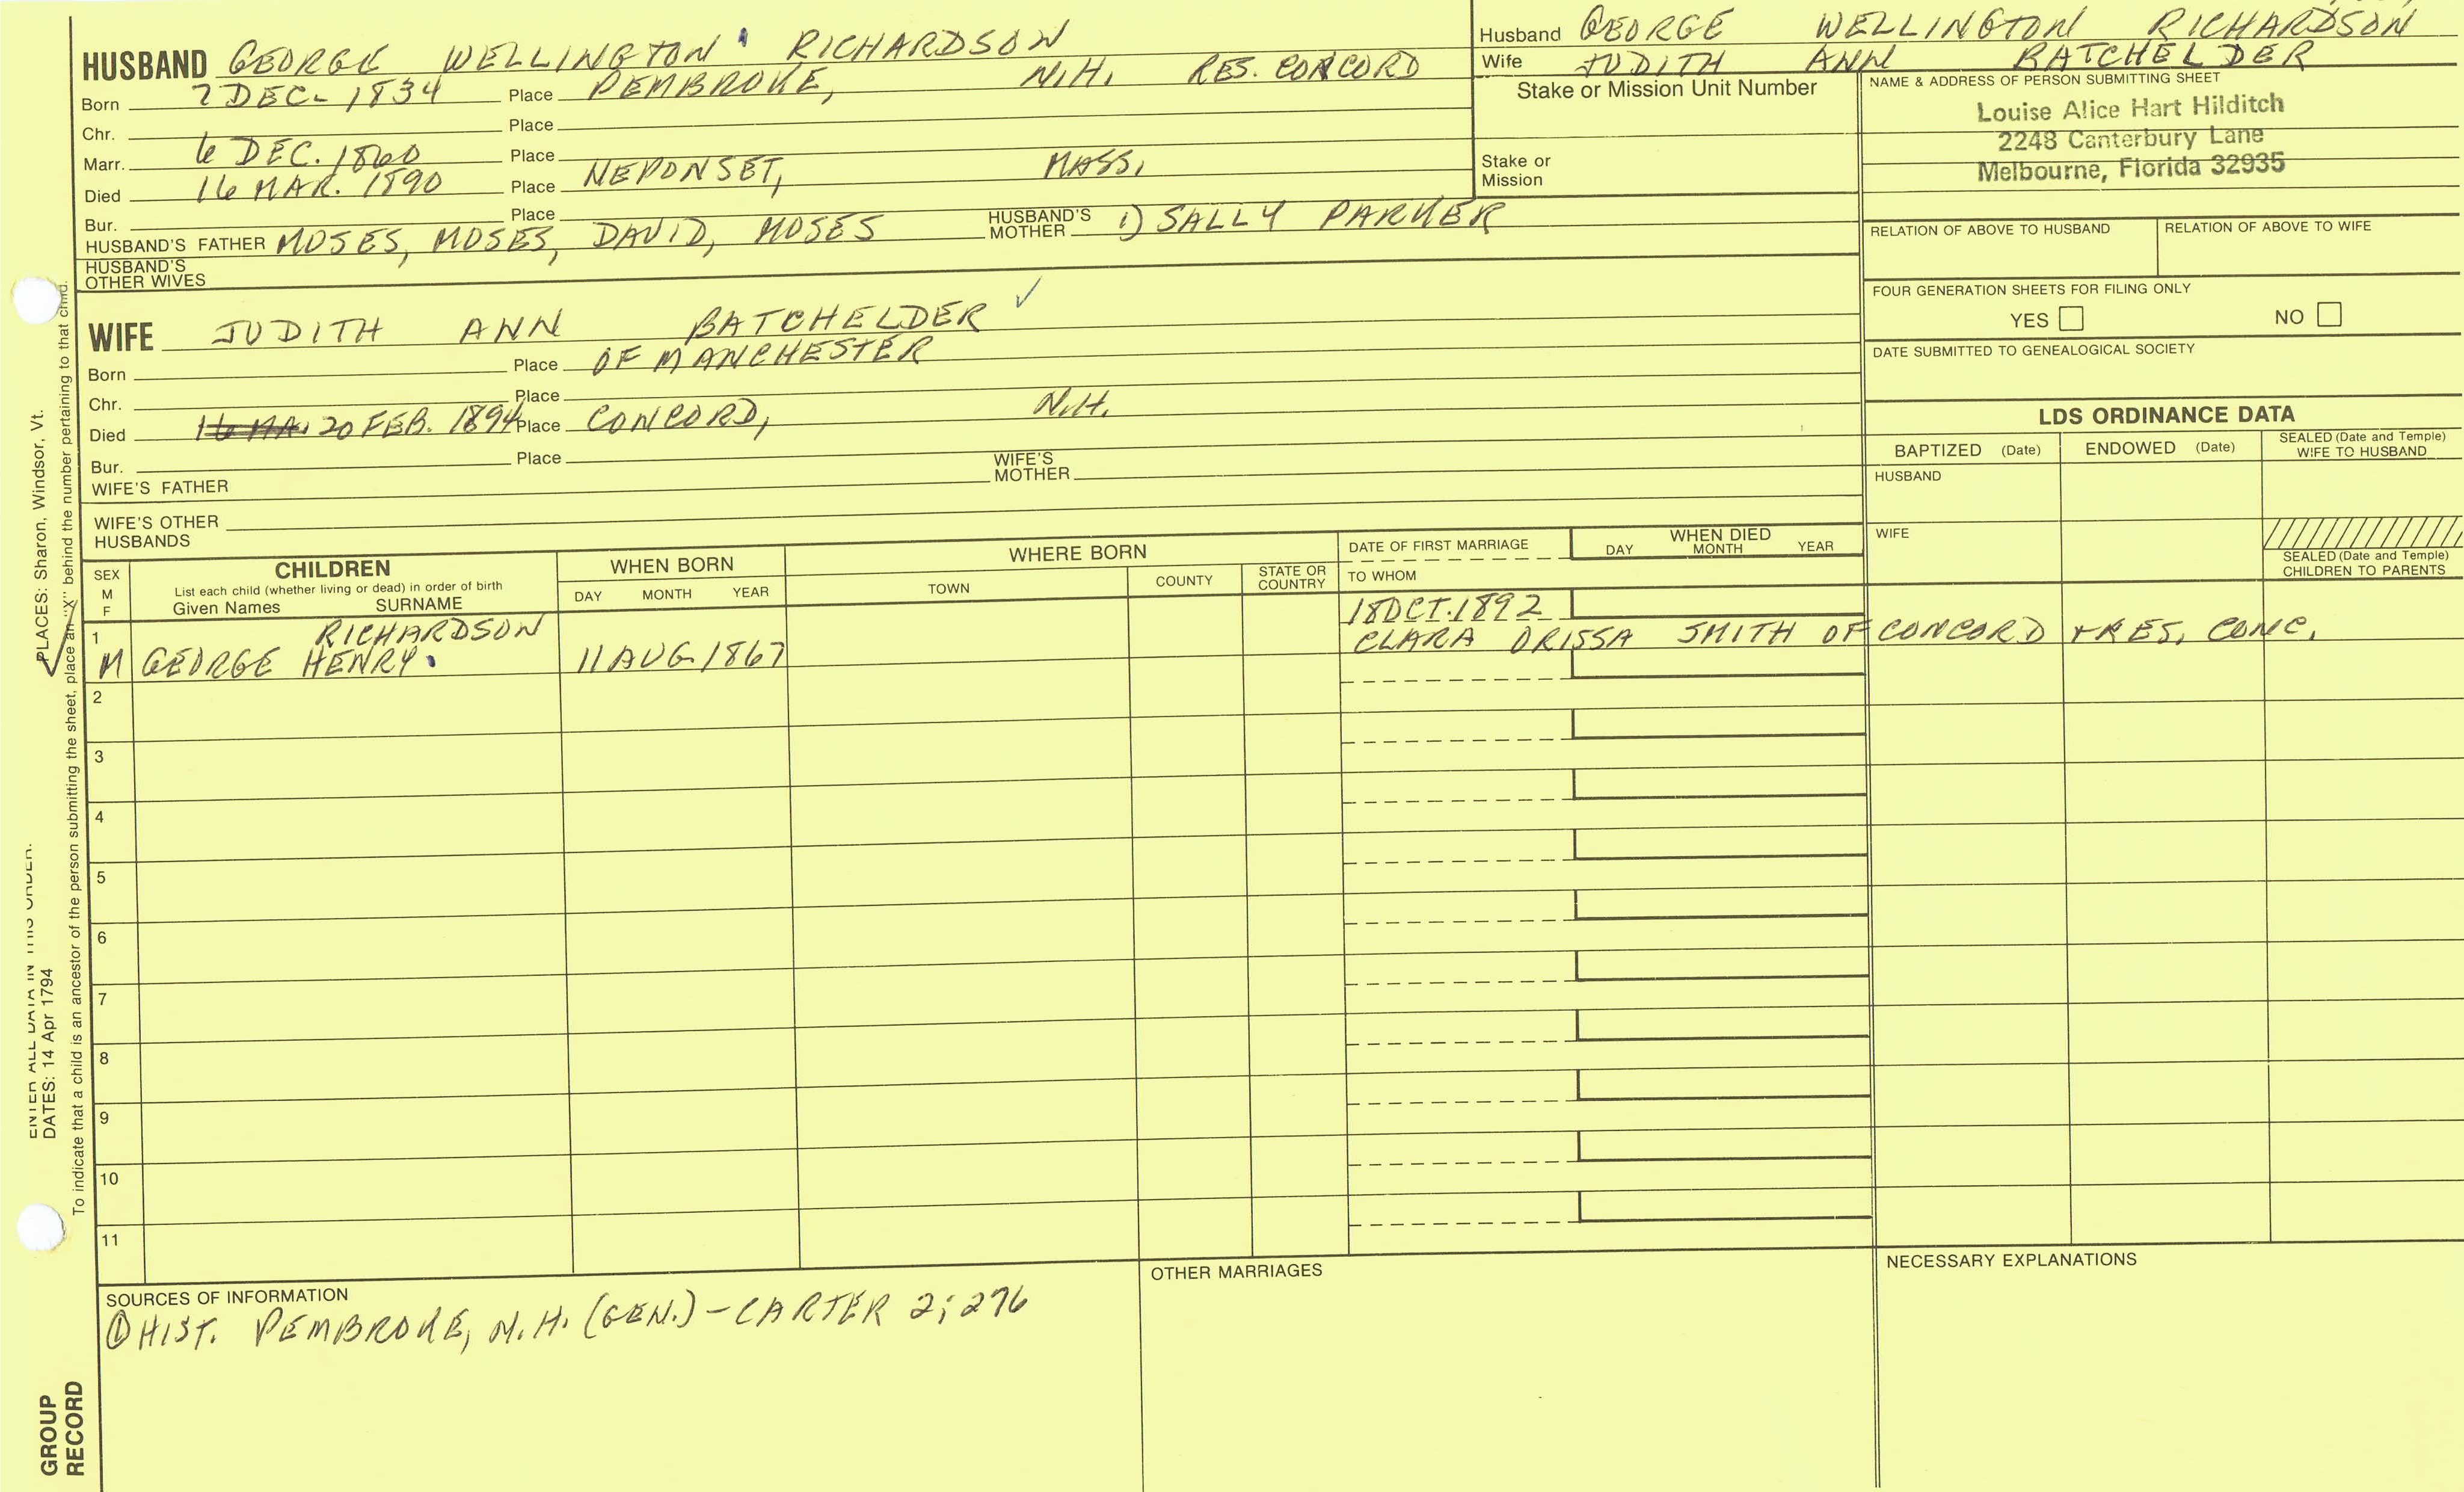 HUSBAND GEORGE WELLINGTON RICHARDSON
Born 7 DEC. 1834 Place PEMBROKE, N.H. RES. CONCORD
Chr. Place
Marr. 6 DEC. 1860 Place
Died 16 MAR. 1890 Place NEPONSET, MASS.
Bur. Place
HUSBAND'S FATHER MOSES, MOSES, DAVID, MOSES HUSBAND'S MOTHER 1) SALLY PARKER
HUSBAND'S OTHER WIVES
Husband GEORGE WELLINGTON RICHARDSON
Wife JUDITH ANN BATCHELDER
Stake or Mission Unit Number
Stake or Mission
NAME & ADDRESS OF PERSON SUBMITTING SHEET
Louise Alice Hart Hilditch
2248 Canterbury Lane
Melbourne, Florida 32935
RELATION OF ABOVE TO HUSBAND RELATION OF ABOVE TO WIFE
FOUR GENERATION SHEETS FOR FILING ONLY
YES NO
DATE SUBMITTED TO GENEALOGICAL SOCIETY
WIFE JUDITH ANN BATCHELDER ✓
Born Place OF MANCHESTER
Chr. Place
Died 20 FEB. 1894 Place CONCORD, N.H.
Bur. Place
WIFE'S FATHER WIFE'S MOTHER
WIFE'S OTHER HUSBANDS
LDS ORDINANCE DATA
BAPTIZED (Date) ENDOWED (Date) SEALED (Date and Temple) WIFE TO HUSBAND
HUSBAND
WIFE
SEALED (Date and Temple) CHILDREN TO PARENTS
SEX M F
CHILDREN
List each child (whether living or dead) in order of birth
Given Names SURNAME
WHEN BORN
DAY MONTH YEAR
WHERE BORN
TOWN COUNTY STATE OR COUNTRY
DATE OF FIRST MARRIAGE
TO WHOM
WHEN DIED
DAY MONTH YEAR
1 RICHARDSON 18 OCT. 1892
M GEORGE HENRY 11 AUG 1867 CLARA ORISSA SMITH OF CONCORD + RES. CONC.
2
3
4
5
6
7
8
9
10
11
SOURCES OF INFORMATION
① HIST. PEMBROKE, N.H. (GEN.) - CARTER 2; 276
OTHER MARRIAGES
NECESSARY EXPLANATIONS
ENTER ALL DATA IN THIS ORDER:
DATES: 14 Apr 1794
PLACES: Sharon, Windsor, Vt.
To indicate that a child is an ancestor of the person submitting the sheet, place an "X" behind the number pertaining to that child.
GROUP
RECORD